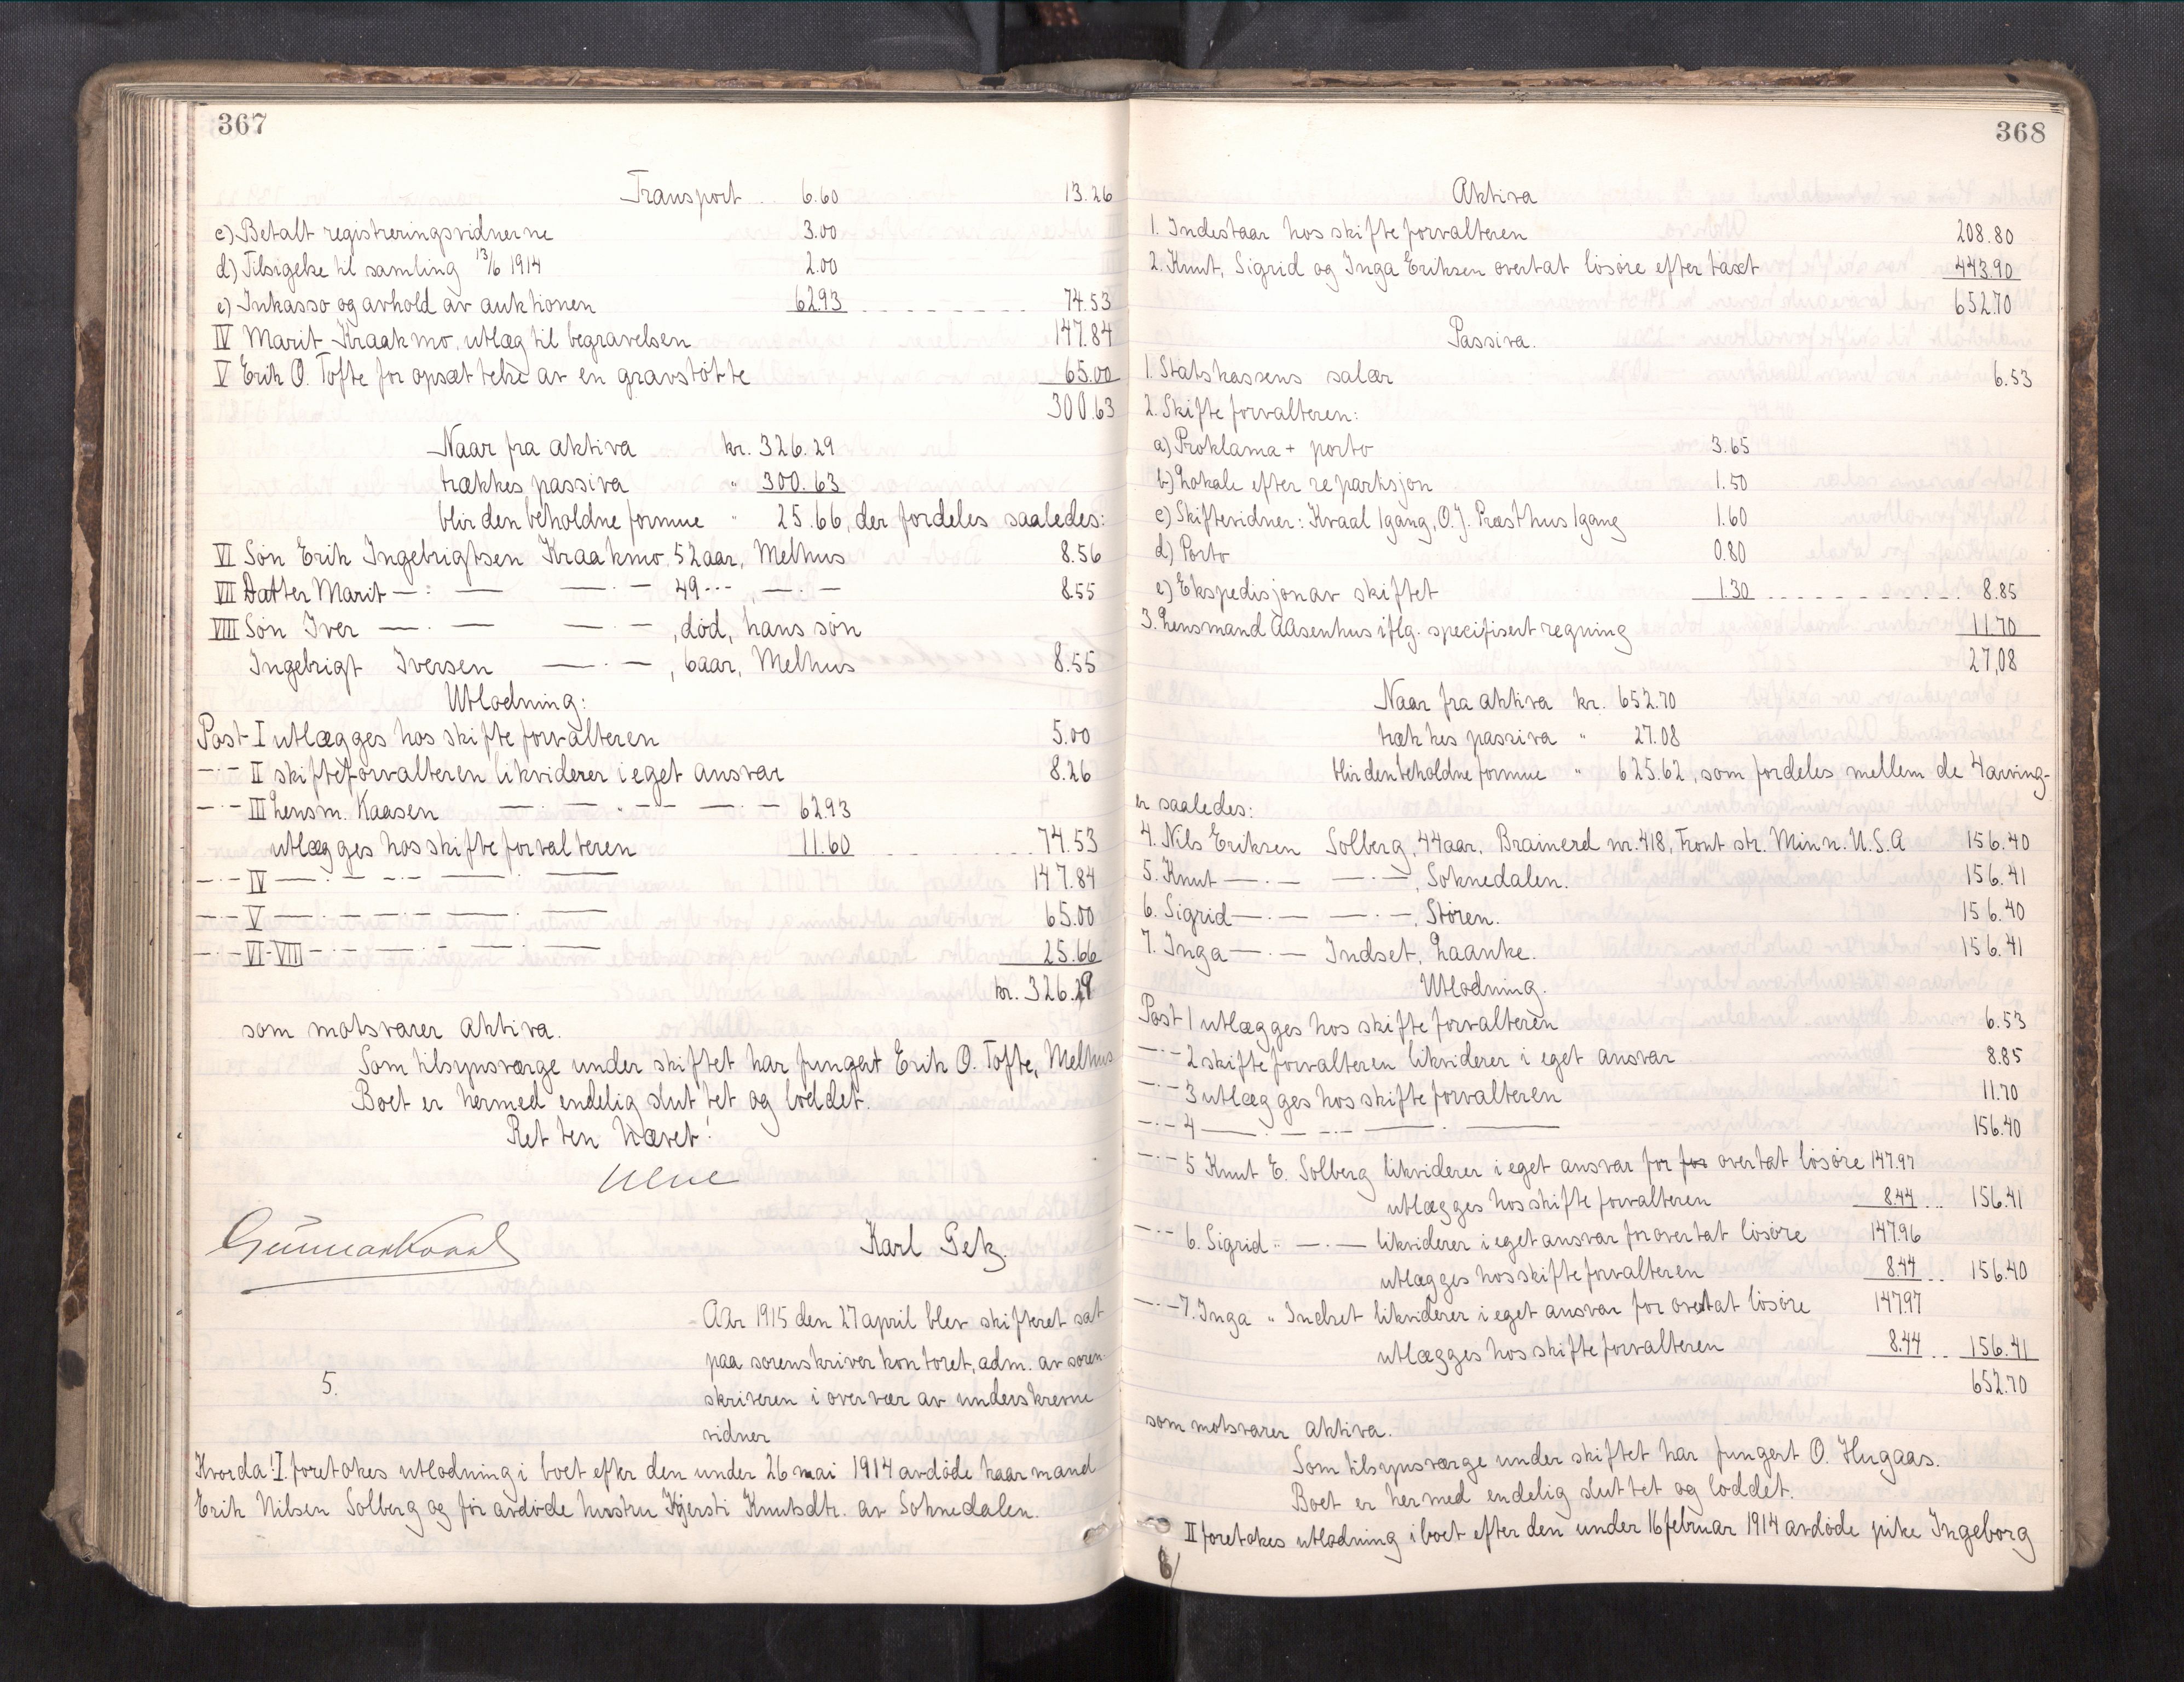 367
Transport .. 6.60 13.26
c) Betalt registreringsvidnerne 3.00
d) Tilsigelse til samling 13/6 1914 2.00
e) Inkasso og avhold av auktionen 62.93 - - - - - - - - 74.53
IV Marit Kraakmo, utlæg til begravelsen 147.84
V Erik O. Tofte for opsættelse av en gravstøtte 65.00
300.63
Naar fra aktiva kr. 326.29
trækkes passiva " 300.63
blir den beholdne formue " 25.66, der fordeles saaledes:
VI Søn Erik Ingebrigtsen Kraakmo 52 aar, Melhus 8.56
VII Datter Marit —:— —·— 49 -·- , —·— 8.55
VIII Søn Iver —·— —·— , død, hans søn
Ingebrigt Iversen —·— , 6 aar, Melhus 8.55
Utlodning:
Post I utlægges hos skifteforvalteren 5.00
-·- II skifteforvalteren likviderer i eget ansvar 8.26
-·- III Lensm. Kaasen —·— " -- —·— 62.93
utlægges hos skifteforvalteren 11.60 - - - - - 74.53
-·- IV —·— -·- —·— —— 147.84
-·- V —·— -·- —·— —— 65.00
-·- VI-VIII -·- —·— -·- —·— —— 25.66
kr. 326.29
som motsvarer aktiva.
Som tilsynsværge under skiftet har fungert Erik O. Tofte, Melhus
Boet er hermed endelig sluttet og loddet.
Retten hævet!
Gunnar Kvaal Karl Getz.
Aar 1915 den 27 april blev skifteret sat
paa sorenskriverkontoret, adm. av soren-
5. skriveren i overvær av underskrevne
vidner
Hvorda! I. foretokes utlodning i boet efter den under 26 mai 1914 avdøde kaarmand
Erik Nilsen Solberg og før avdøde hustru Kjersti Knutsdtr. av Soknedalen.
368
Aktiva
1. Indestaar hos skifteforvalteren 208.80
2. Knut, Sigrid og Inga Eriksen overtat løsøre efter taxt 443.90
652.70
Passiva.
1. Statskassens salær 6.53
2. Skifteforvalteren:
a) Proklama + porto 3.65
b) Lokale efter repartisjon 1.50
c) Skiftevidner: Kvaal 1 gang, O. J. Præsthus 1 gang 1.60
d) Porto 0.80
e) Ekspedisjon av skiftet 1.30 - - - - - - - - 8.85
3. Lensmand Aasenhus iflg. specifisert regning 11.70
27,08
Naar fra aktiva kr. 652.70
trækkes passiva " 27.08
blir den beholdne formue " 625.62, som fordeles mellem de 4 arving-
er saaledes:
4. Nils Eriksen Solberg, 44 aar, Brainerd nr. 418, Front str. Minn. U.S.A 156.40
5. Knut —·— —·— , Soknedalen. 156.41
6. Sigrid —·— —·— , Støren. 156.40
7. Inga —·— Indset, Laanke. 156.41
Utlodning.
Post 1 utlægges hos skifteforvalteren 6.53
-·- 2 skifteforvalteren likviderer i eget ansvar 8.85
-·- 3 utlægges hos skifteforvalteren 11.70
-·- 4 —·— -·- —·— —— 156.40
-·- 5 Knut E. Solberg likviderer i eget ansvar for for overtat løsøre 147.97
utlægges hos skifteforvalteren 8.44 .. 156.41
-·- 6. Sigrid " —·— likviderer i eget ansvar for overtat løsøre 147.96
utlægges hos skifteforvalteren 8.44 .. 156.40
-·- 7. Inga " Indset likviderer i eget ansvar for overtat løsøre 147.97
utlægges hos skifteforvalteren 8.44 .. 156.41
652.70
som motsvarer aktiva.
Som tilsynsværge under skiftet har fungert O. Hugaas.
Boet er hermed endelig sluttet og loddet.
II foretokes utlodning i boet efter den under 16 februar 1914 avdøde pike Ingeborg